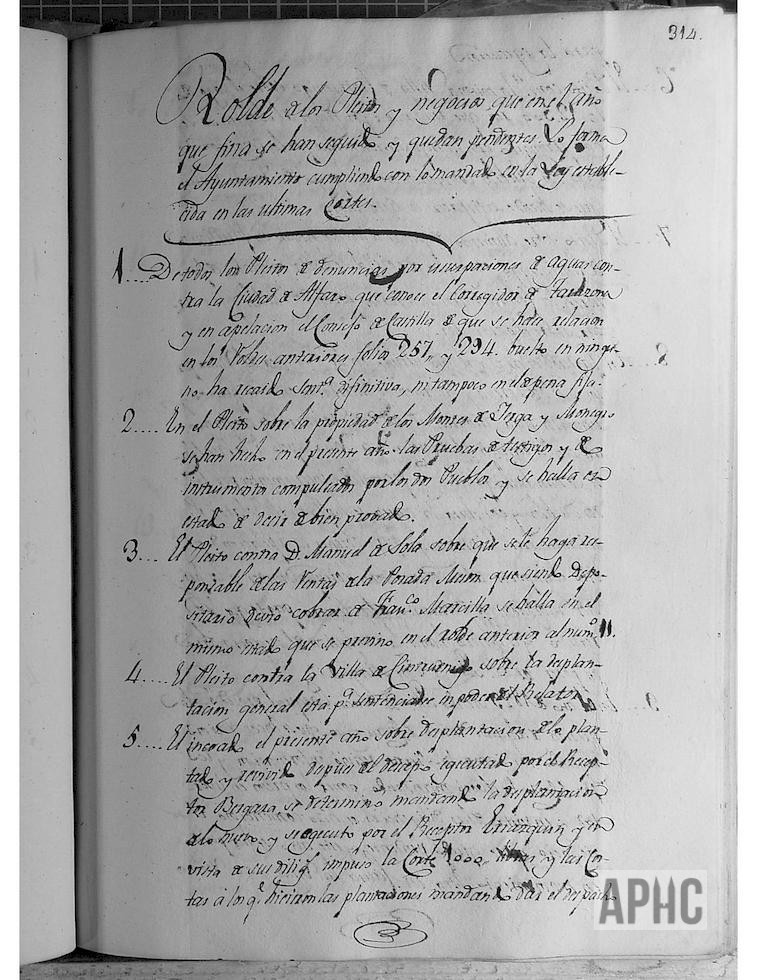 314.
Rolde de los Pleitos, y negocios que en el año
que fina se han seguido y quedan pendentes. Lo forma
el Ayuntamiento cumpliendo con lo mandado en la Ley estable-
cida en las ultimas Cortes.
1.... De todos los Pleitos de denuncias por usurpaciones de aguas con-
tra la Ciudad de Alfaro que conoce el Corregidor de Tarazona
y en apelacion el Consejo de Castilla de que se hace relacion
en los Roldes anteriores folios 257, y 294. buelto en ningu-
no ha recaido Sent.ª difinitiva, ni tampoco en el de pena fija.
2.... En el Pleito sobre la propiedad de los Montes de Yerga y Monegro
se han hecho en el presente año las Pruebas de testigos y de
instrumentos compulsados por los dos Pueblos y se halla en
estado de decir de bien probado.
3... El Pleito contra D. Manuel de Sola sobre que se le haga res-
ponsable de las Ventas de la Posada Meson que siendo Depo-
sitario devió cobrar de Fran.co Marcilla se halla en el
mismo estado que se previno en el rolde anterior al num.º 11.
4.... El Pleito contra la Villa de Cintruenigo sobre la desplan-
tacion general está p.ª sentenciarse en poder del Relator
5.... El incoado el presente año sobre desplantacion de lo plan-
tado y revivido despues del descepo egecutado por el Recep-
tor Bergara, se determinó mandando la desplantacion
de lo nuevo, y se egecutó por el Receptor y en
vista de sus dilig.s impuso la Corte 1000, libras y las Cos-
tas á los q.e hicieron las plantaciones mandando dar el despacho
APHC